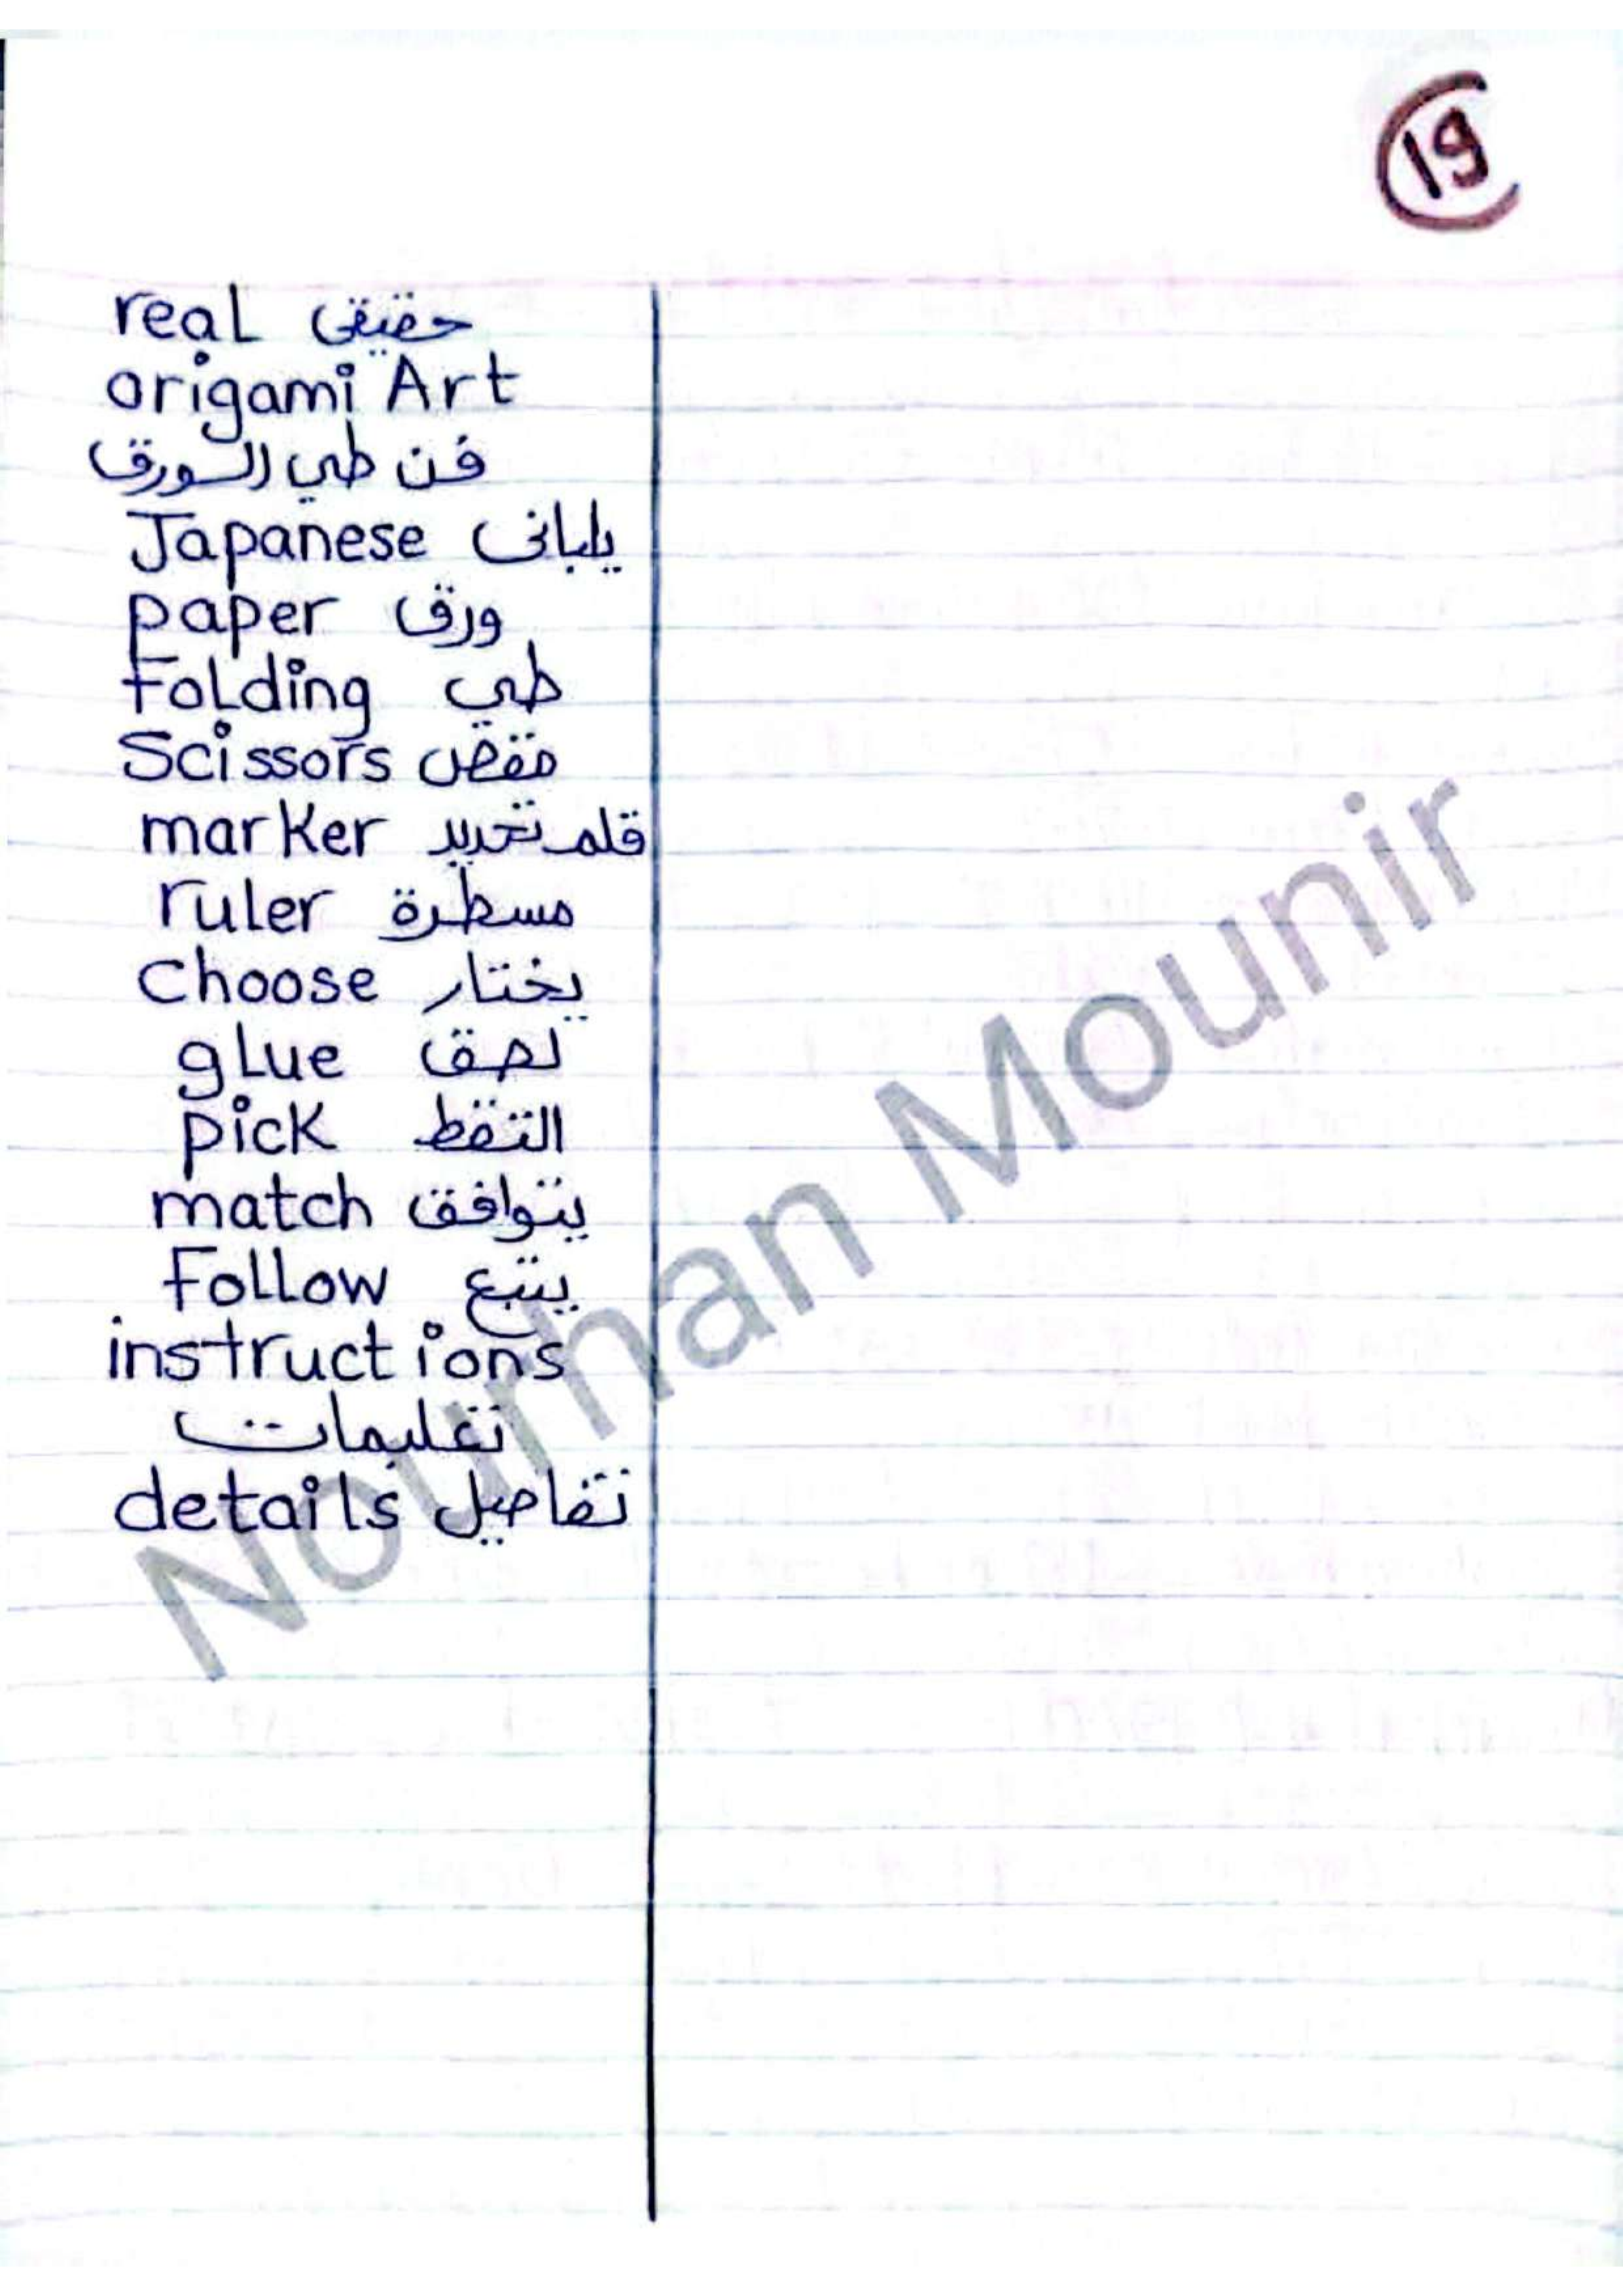 19
real حقيقى
origami Art
فن طي الورق
Japanese يابانى
paper ورق
Folding طي
Scissors مقص
marker قلم تحديد
ruler مسطرة
Choose يختار
glue لصق
pick التقط
match يتوافق
Follow يتبع
instructions
تعليمات
details تفاصيل
Nourhan Mounir